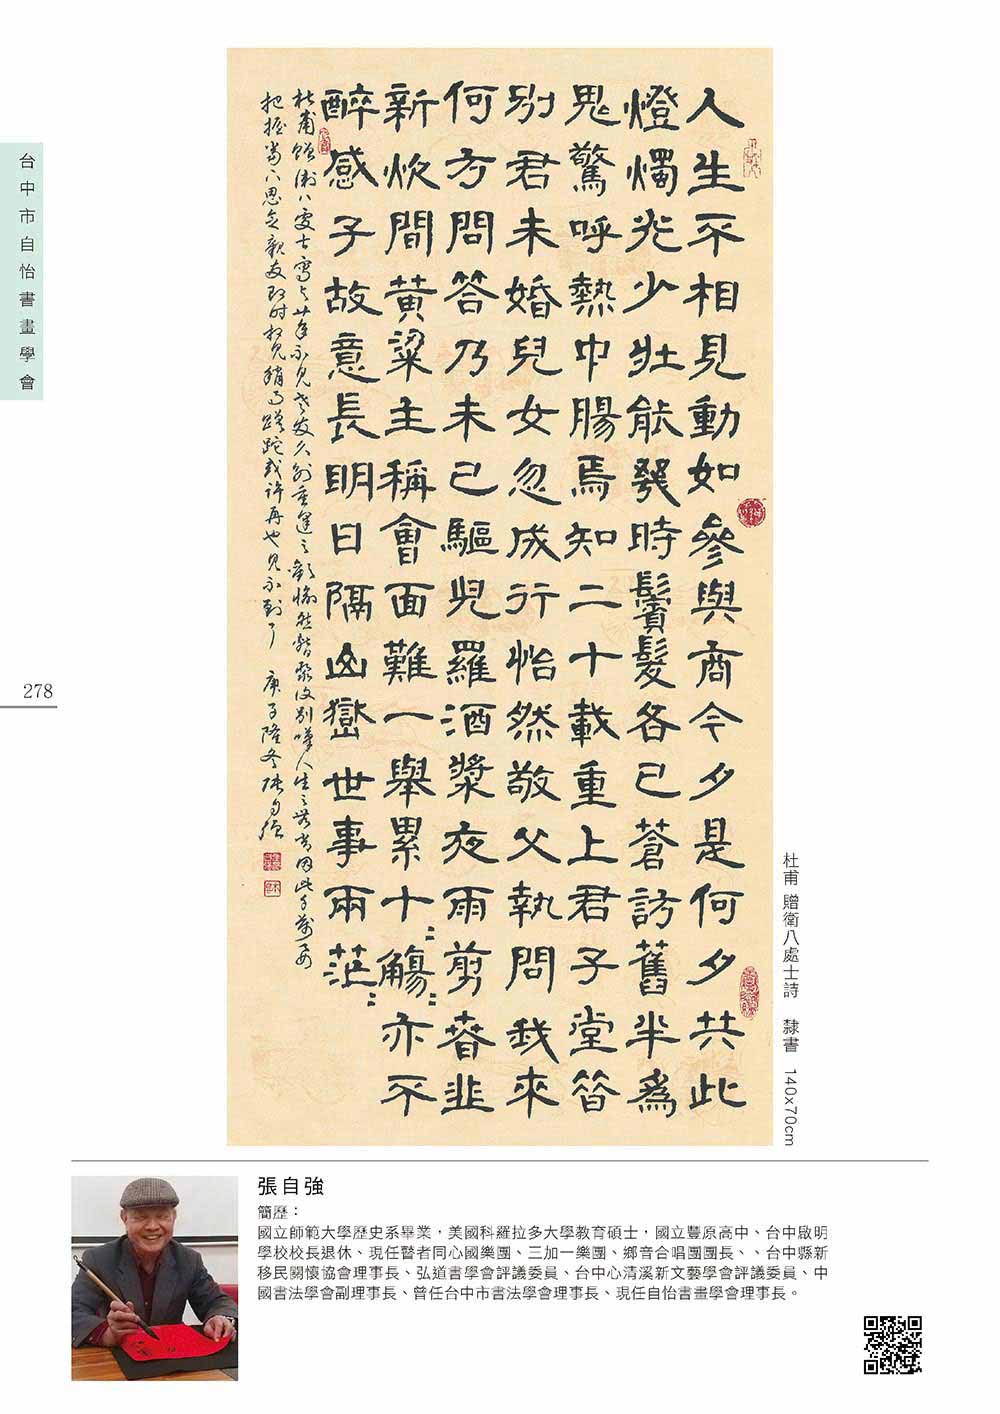 台中市自怡書畫學會
278
人生不相見動如參與商今夕是何夕共此
燈燭光少壯能幾時鬢髮各已蒼訪舊半為
鬼驚呼熱中腸焉知二十載重上君子堂昔
別君未婚兒女忽成行怡然敬父執問我來
何方問答乃未已驅兒羅酒漿夜雨剪春韭
新炊間黃粱主稱會面難一舉累十〻觴〻亦不
醉感子故意長明日隔山嶽世事兩茫〻
杜甫贈衛八處士寫 廿年不見老友久別重逢之歡愉然暫聚後別嘆人生之無常因此
把握當下思念親友即時相見稍 蹉跎或許再也見不到了 庚子隆冬張自強
杜甫 贈衛八處士詩 隸書 140x70cm
張自強
簡歷：
國立師範大學歷史系畢業，美國科羅拉多大學教育碩士，國立豐原高中、台中啟明
學校校長退休、現任瞽者同心國樂團、三加一樂團、鄉音合唱團團長、、台中縣新
移民關懷協會理事長、弘道書學會評議委員、台中心清溪新文藝學會評議委員、中
國書法學會副理事長、曾任台中市書法學會理事長、現任自怡書畫學會理事長。